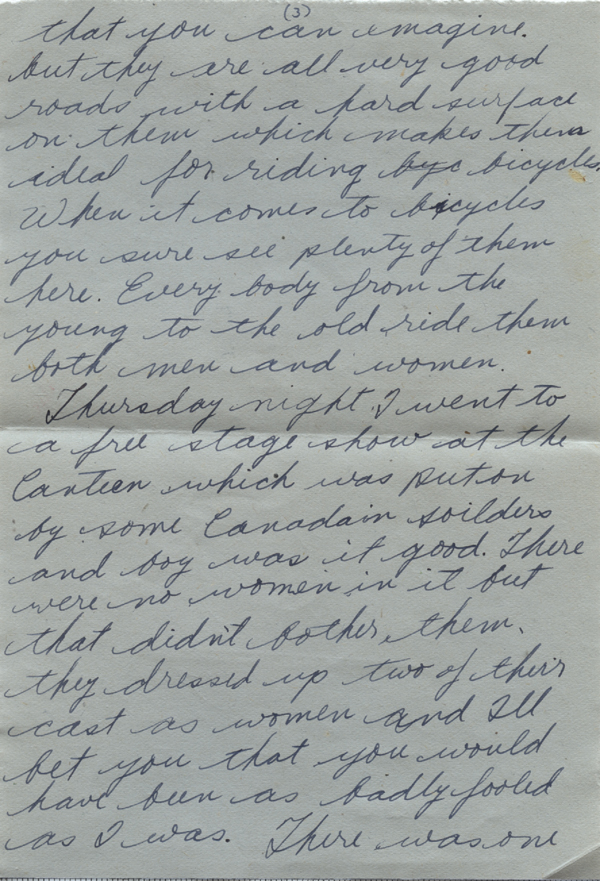 (3)
that you can imagine.
but they are all very good
roads with a hard surface
on them which makes them
ideal for riding byc bicycles.
When it comes to bicycles
you sure see plenty of them
here. Every body from the
young to the old ride them
both men and women.
Thursday night I went to
a free stage show at the
Canteen which was put on
by some Canadain soilders
and boy was it good. There
were no women in it but
that didn't bother them.
they dressed up two of their
cast as women and I'll
bet you that you would
have been as badly fooled
as I was. There was one